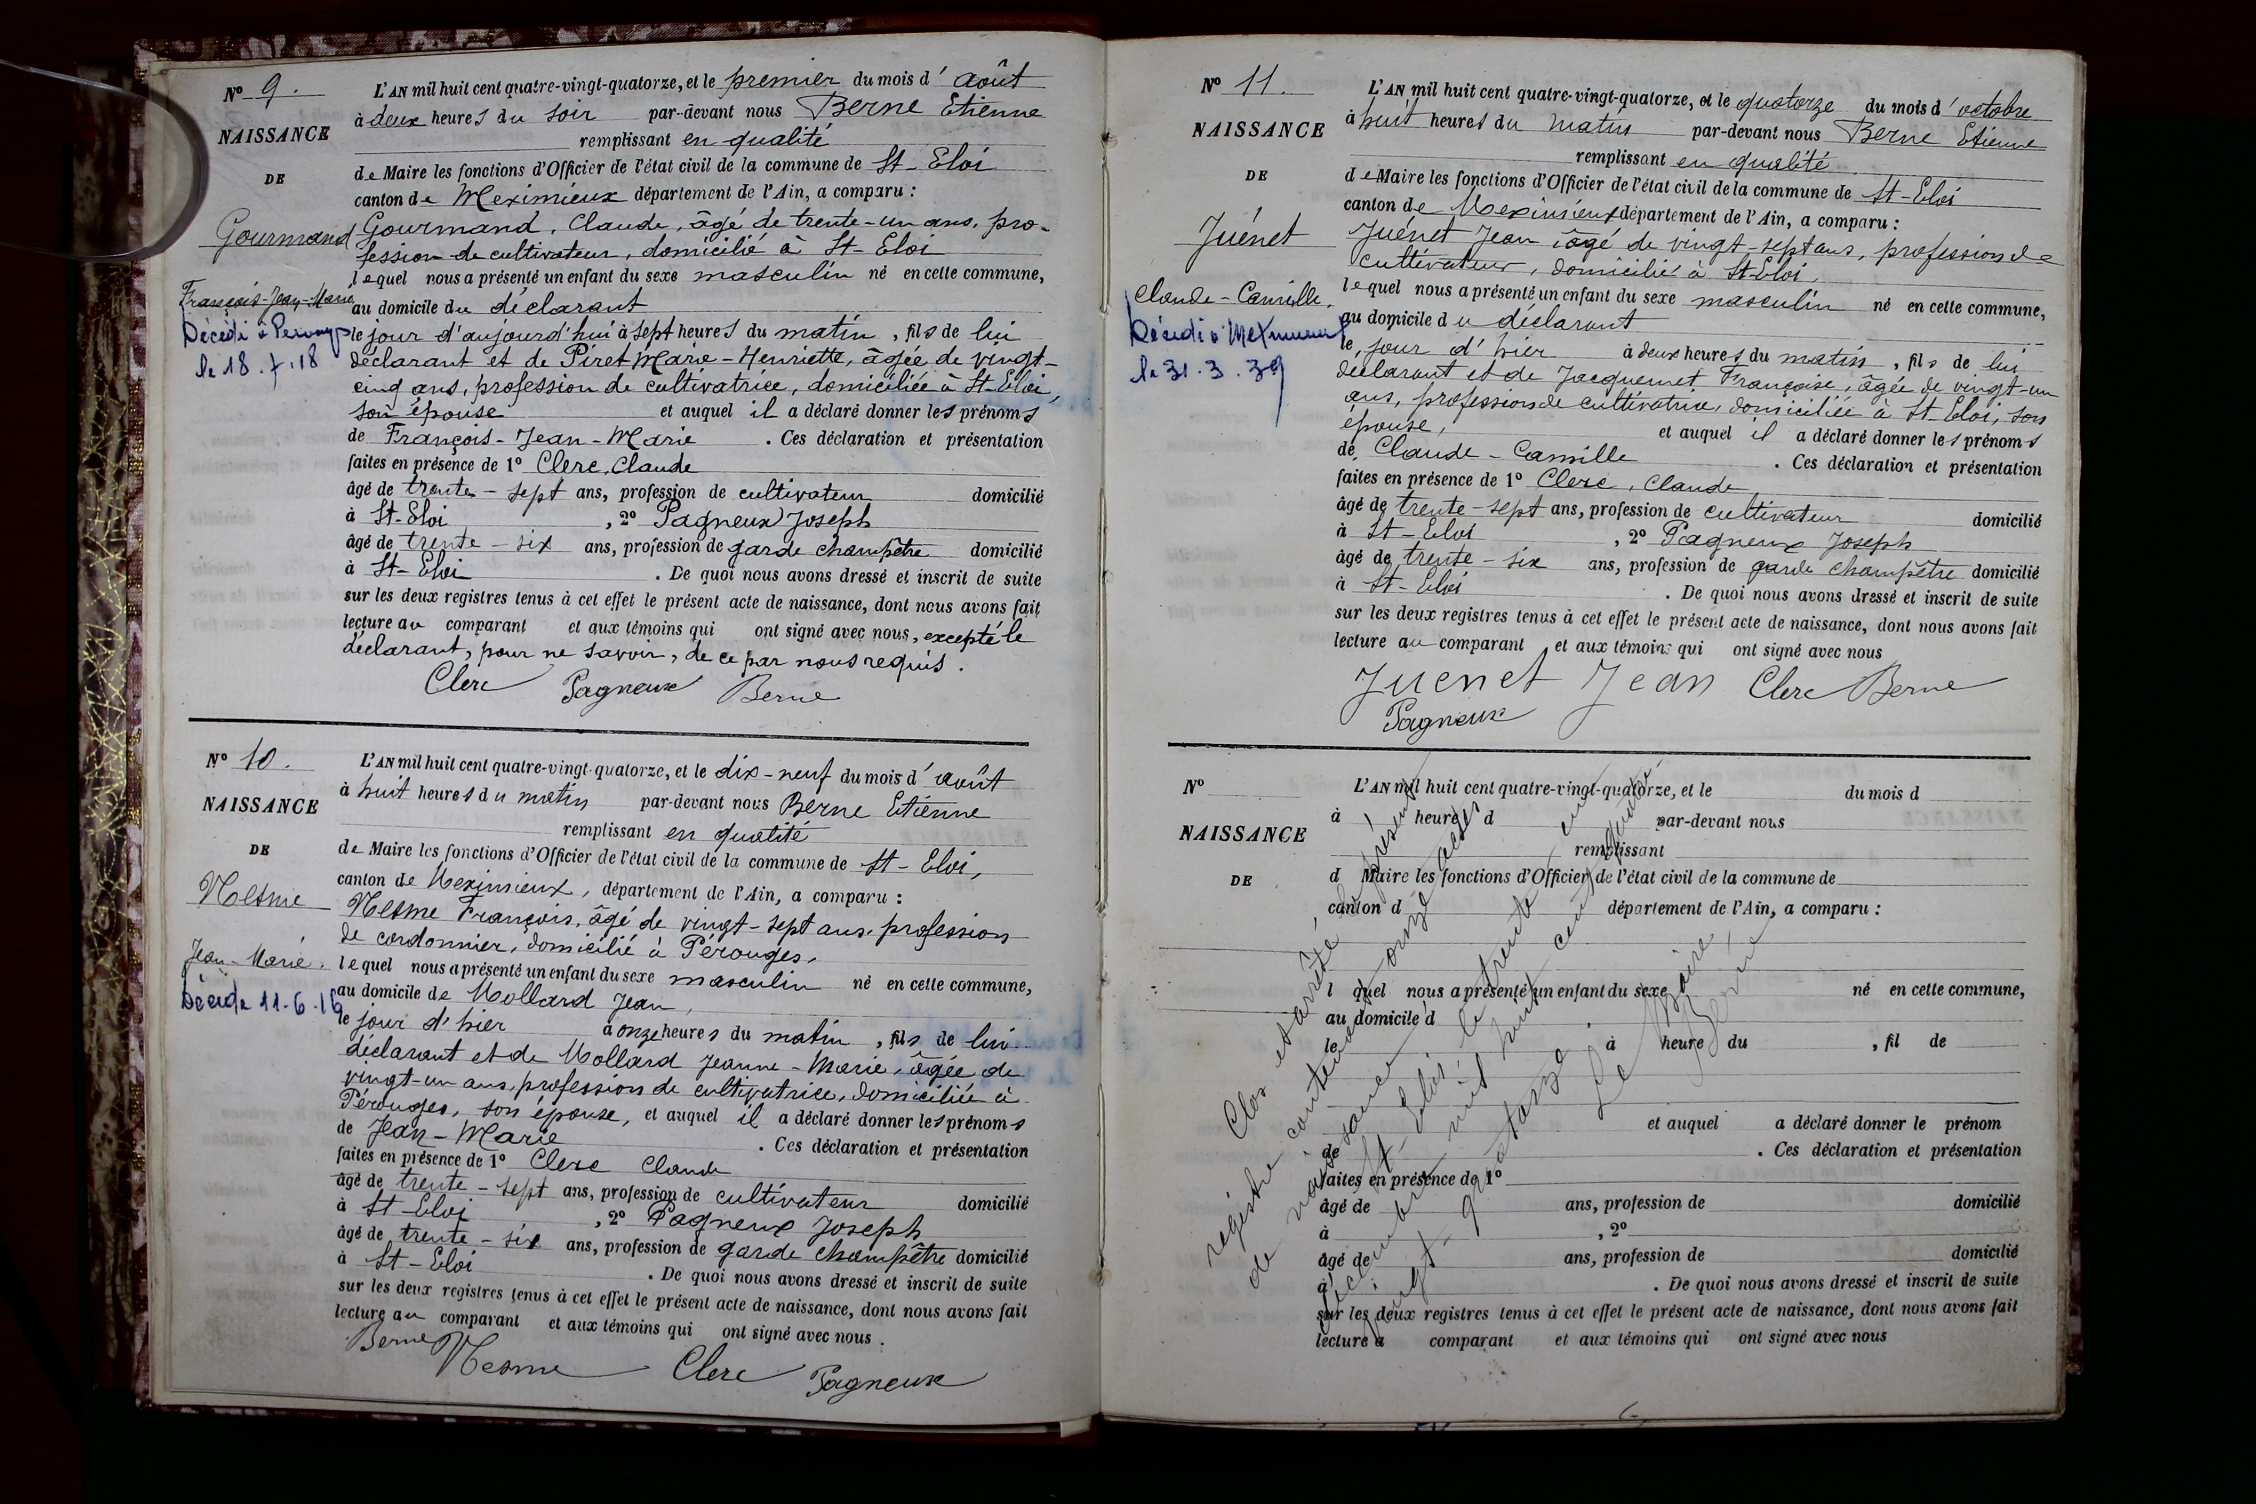 N° 9.
NAISSANCE
DE
Gourmand
François-Jean-Marie
Décédé à
le 18.7.18
L'AN mil huit cent quatre-vingt-quatorze, et le premier du mois d'août
à deux heures du soir par-devant nous Berne Etienne
remplissant en qualité
de Maire les fonctions d'Officier de l'état civil de la commune de St-Eloi
canton de Meximieux département de l'Ain, a comparu :
Gourmand, Claude, âgé de trente-un ans, pro-
fession de cultivateur, domicilié à St-Eloi
lequel nous a présenté un enfant du sexe masculin né en cette commune,
au domicile du déclarant
le jour d'aujourd'hui à sept heures du matin, fils de lui
déclarant et de Piret Marie-Henriette, âgée de vingt-
cinq ans, profession de cultivatrice, domiciliée à St-Eloi,
son épouse et auquel il a déclaré donner les prénoms
de François-Jean-Marie . Ces déclaration et présentation
faites en présence de 1° Clerc, Claude
âgé de trente-sept ans, profession de cultivateur domicilié
à St-Eloi , 2° Pagneux Joseph
âgé de trente-six ans, profession de garde champêtre domicilié
à St-Eloi . De quoi nous avons dressé et inscrit de suite
sur les deux registres tenus à cet effet le présent acte de naissance, dont nous avons fait
lecture au comparant et aux témoins qui ont signé avec nous, excepté le
déclarant, pour ne savoir, de ce par nous requis.
Clerc Pagneux Berne
N° 10.
NAISSANCE
DE
Mesme
Jean-Marie.
Décédé 11-6-16
L'AN mil huit cent quatre-vingt-quatorze, et le dix-neuf du mois d'août
à huit heures du matin par-devant nous Berne Etienne
remplissant en qualité
de Maire les fonctions d'Officier de l'état civil de la commune de St-Eloi,
canton de Meximieux, département de l'Ain, a comparu :
Mesme François, âgé de vingt-sept ans, profession
de cordonnier, domicilié à Pérouges,
lequel nous a présenté un enfant du sexe masculin né en cette commune,
au domicile de Mollard Jean,
le jour d'hier à onze heures du matin, fils de lui
déclarant et de Mollard Jeanne-Marie, âgée de
vingt-un ans, profession de cultivatrice, domiciliée à
Pérouges, son épouse, et auquel il a déclaré donner les prénoms
de Jean-Marie . Ces déclaration et présentation
faites en présence de 1° Clerc Claude
âgé de trente-sept ans, profession de cultivateur domicilié
à St-Eloi , 2° Pagneux Joseph
âgé de trente-six ans, profession de garde champêtre domicilié
à St-Eloi . De quoi nous avons dressé et inscrit de suite
sur les deux registres tenus à cet effet le présent acte de naissance, dont nous avons fait
lecture au comparant et aux témoins qui ont signé avec nous.
Berne Mesme Clerc Pagneux
N° 11.
NAISSANCE
DE
Juénet
Claude-Camille.
Décédé à Meximieux
le 31.3.39
L'AN mil huit cent quatre-vingt-quatorze, et le quatorze du mois d'octobre
à huit heures du matin par-devant nous Berne Etienne
remplissant en qualité
de Maire les fonctions d'Officier de l'état civil de la commune de St-Eloi
canton de Meximieux département de l'Ain, a comparu :
Juénet Jean, âgé de vingt-sept ans, profession de
cultivateur, domicilié à St-Eloi,
lequel nous a présenté un enfant du sexe masculin né en cette commune,
au domicile du déclarant
le jour d'hier à deux heures du matin, fils de lui
déclarant et de Jacquemet Françoise, âgée de vingt-un
ans, profession de cultivatrice, domiciliée à St-Eloi, son
épouse, et auquel il a déclaré donner les prénoms
de Claude-Camille . Ces déclaration et présentation
faites en présence de 1° Clerc, Claude
âgé de trente-sept ans, profession de cultivateur domicilié
à St-Eloi , 2° Pagneux Joseph
âgé de trente-six ans, profession de garde champêtre domicilié
à St-Eloi . De quoi nous avons dressé et inscrit de suite
sur les deux registres tenus à cet effet le présent acte de naissance, dont nous avons fait
lecture au comparant et aux témoins qui ont signé avec nous
Juenet Jean Clerc Berne
Pagneux
N°
NAISSANCE
DE
L'AN mil huit cent quatre-vingt-quatorze, et le du mois d
à heure d par-devant nous
remplissant
d Maire les fonctions d'Officier de l'état civil de la commune de
canton d département de l'Ain, a comparu :
l quel nous a présenté un enfant du sexe né en cette commune,
au domicile d
le à heure du , fil de
et auquel a déclaré donner le prénom
de . Ces déclaration et présentation
faites en présence de 1°
âgé de ans, profession de domicilié
à , 2°
âgé de ans, profession de domicilié
à . De quoi nous avons dressé et inscrit de suite
sur les deux registres tenus à cet effet le présent acte de naissance, dont nous avons fait
lecture a comparant et aux témoins qui ont signé avec nous
Clos et arrêté le présent
registre contenant onze actes
de naissance
St-Eloi, le trente-un
décembre mil huit cent quatre
vingt-quatorze.
Le Maire,
Berne